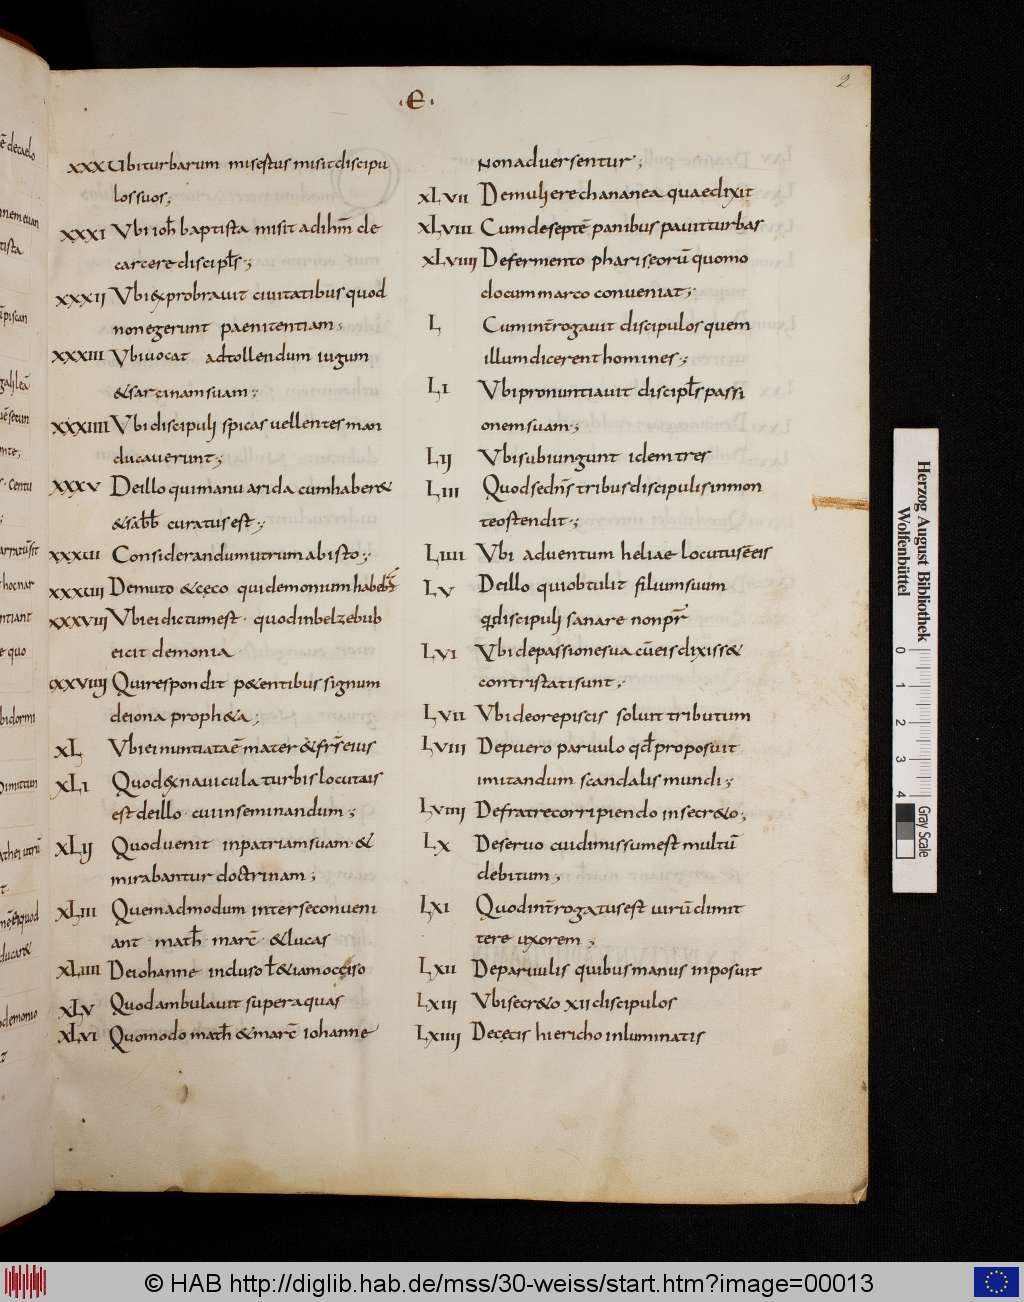 ē decaelo
nnem euan
tista
piscan
galileā
mte;
s· Centu
;
hocnar
ntiant
e quo
bidormi
Dimittun
ducar&
demonio
·E·
2
XXX Ubiturbarum misertus misit discipu
los suos;
XXXI Vbi ioh̄ baptista misit adihm̄ de
carcere discipl̄s·;
XXXII Vbi exprobrauit ciuitatibus quod
non egerunt paenitentiam;
XXXIII Vbi uocat adtollendum iugum
& sarcinam suam·;
XXXIIII Vbi discipuli spicas uellentes man
ducauerunt;
XXXV De illo qui manu arida cum haber&
& sab̄b̄ curatus est·;
XXXVI Considerandum utrum abisto·;
XXXVII De muto & cęco qui demonium habeb̄
XXXVIII Vbi ei dictum est· quod in belzebub
eicit demonia
XXXVIIII Qui respondit p&entibus signum
de iona proph&a;
XL Vbi ei nuntiata ē mater & fr̄s eius
XLI Quod ex nauicula turbis locutus
est de illo cui in seminandum;
XLII Quod uenit in patriam suam· &
mirabantur doctrinam;
XLIII Quemadmodum inter se conueni
ant math̄· marc̄· & lucas
XLIIII De iohanne incluso t̄ & iam occiso
XLV Quod ambulauit super aquas
XLVI Quomodo math̄ & marc̄ iohanne
non aduersentur;
XLVII De muliere chananea quae dixit
XLVIII Cum de septē panibus pauit turbas
XLVIIII De fermento phariseorū quomo
do cum marco conueniat;
L Cum int̄rogauit discipulos quem
illum dicerent homines·;
LI Vbi pronuntiauit discipl̄s passi
onem suam·;
LII Vbi subiungunt idem tres
LIII Quod sedn̄s tribus discipulis in mon
te ostendit·;
LIIII Vbi aduentum heliae locutus ē eis
LV De illo qui obtulit filium suum
qd̄ discipuli sanare non pr̄
LVI Vbi de passione sua cū eis dixiss&
contristati sunt;
LVII Vbi de ore piscis soluit tributum
LVIII De puero paruulo qd̄ proposuit
imitandum scandalis mundi·;
LVIIII De fratre corripiendo in secr&o;
LX De seruo cui dimissum est multū
debitum;
LXI Quod int̄rogatus est uirū dimit
tere uxorem;
LXII De paruulis quibus manus inposuit
LXIII Vbi secr&o XII discipulos
LXIIII De cęcis hiericho inluminatis
Herzog August Bibliothek
Wolfenbüttel
0 1 2 3 4 Gray Scale
© HAB http://diglib.hab.de/mss/30-weiss/start.htm?image=00013